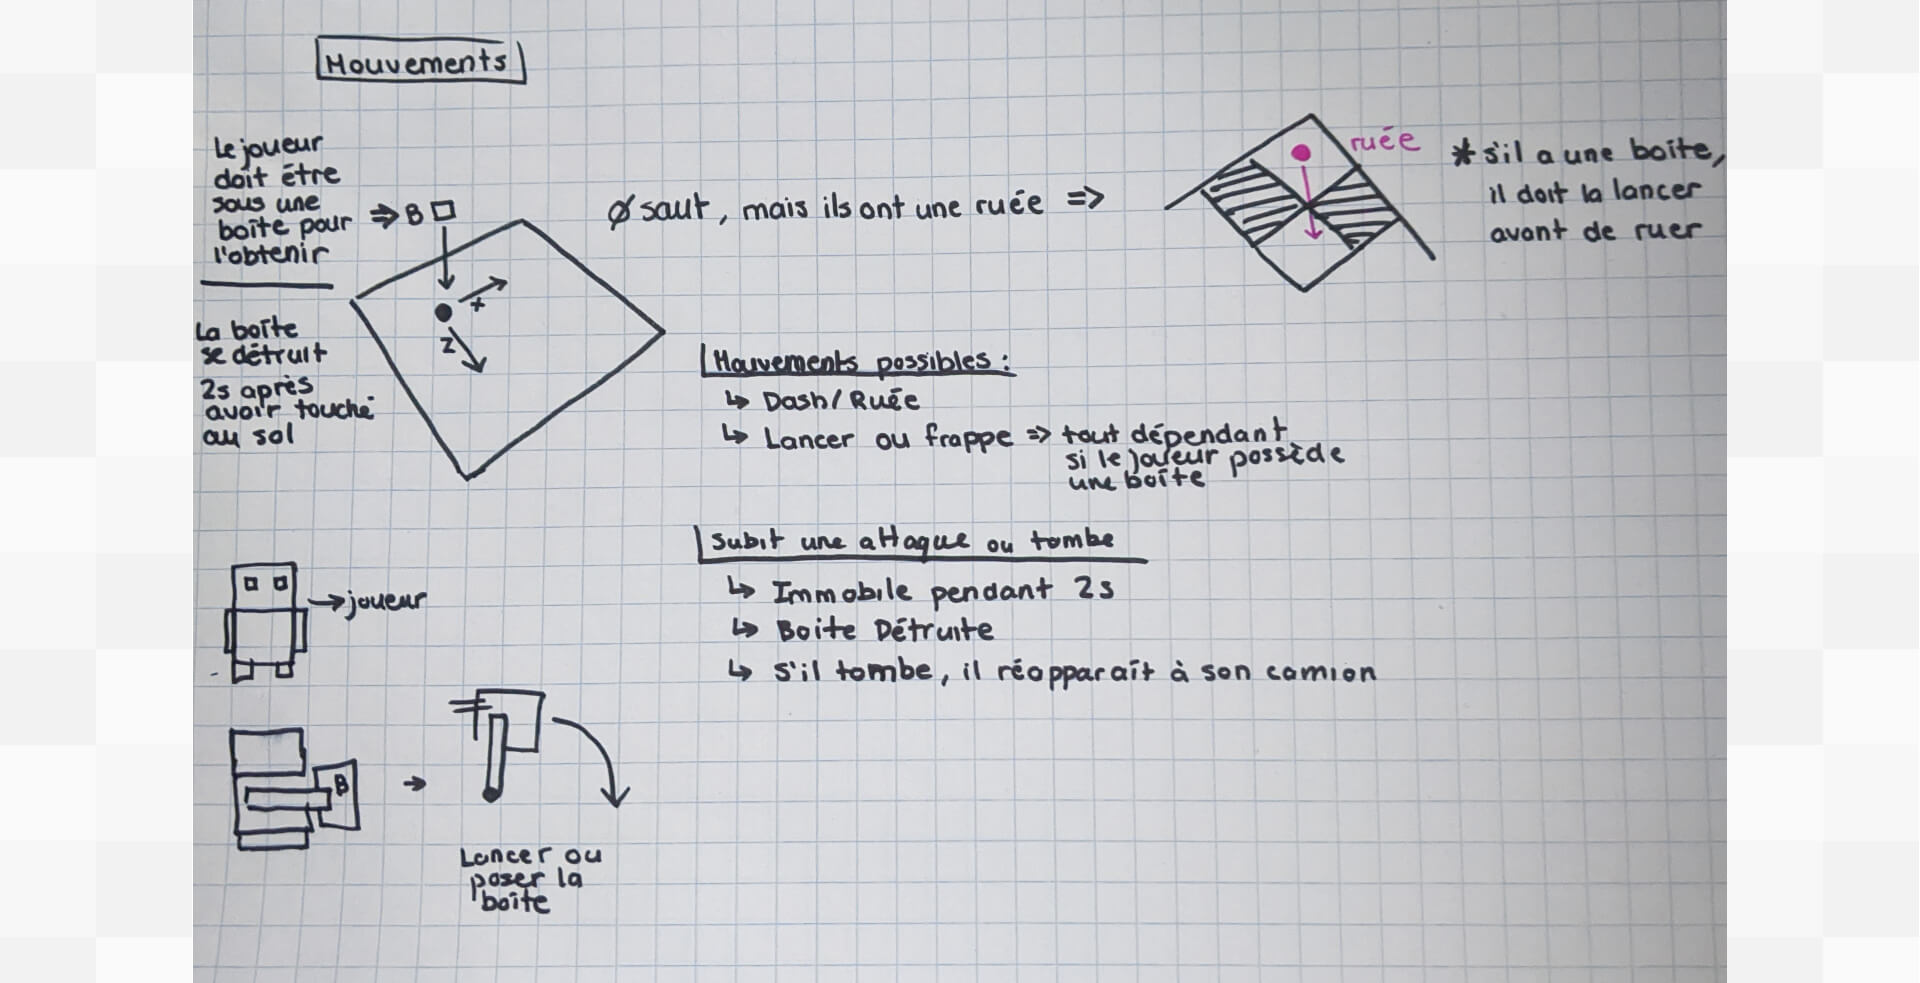 Mouvements
Le joueur
doit être
sous une
boîte pour
l'obtenir
⇒ B
La boîte
se détruit
2s après
avoir touché
au sol
x
z
Ø saut, mais ils ont une ruée ⇒
ruée
* s'il a une boîte,
il doit la lancer
avant de ruer
Mouvements possibles :
↳ Dash/Ruée
↳ Lancer ou frappe ⇒ tout dépendant
si le joueur possède
une boîte
Subit une attaque ou tombe
↳ Immobile pendant 2s
↳ Boite Détruite
↳ S'il tombe, il réapparaît à son camion
→ joueur
B
→
Lancer ou
poser la
boîte